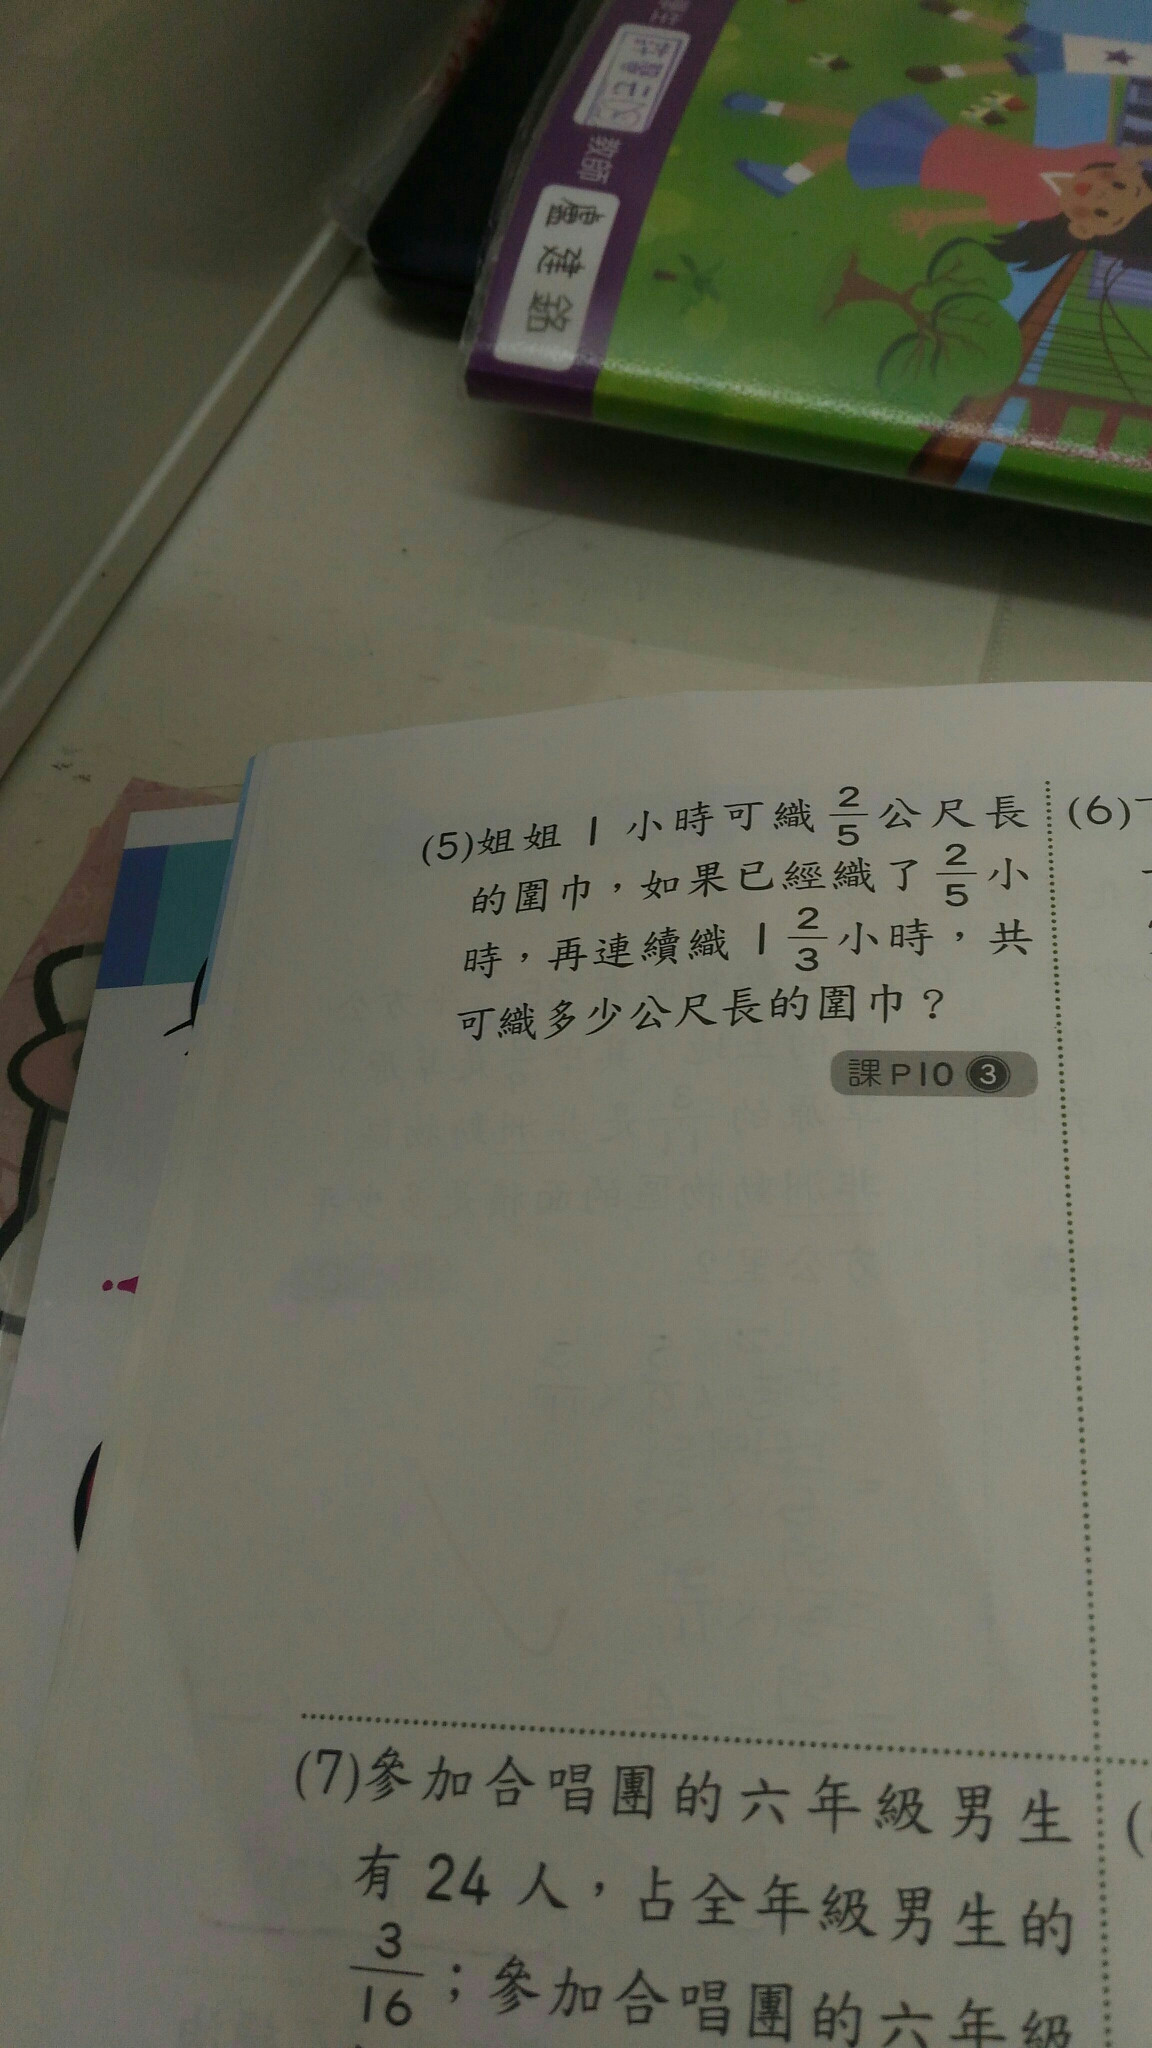 教師
盧建銘
(5)姐姐 1 小時可織 2/5 公尺長
的圍巾，如果已經織了 2/5 小
時，再連續織 1 2/3 小時，共
可織多少公尺長的圍巾？
課P10 3
(6)
(7)參加合唱團的六年級男生
有 24 人，占全年級男生的
3/16；參加合唱團的六年級